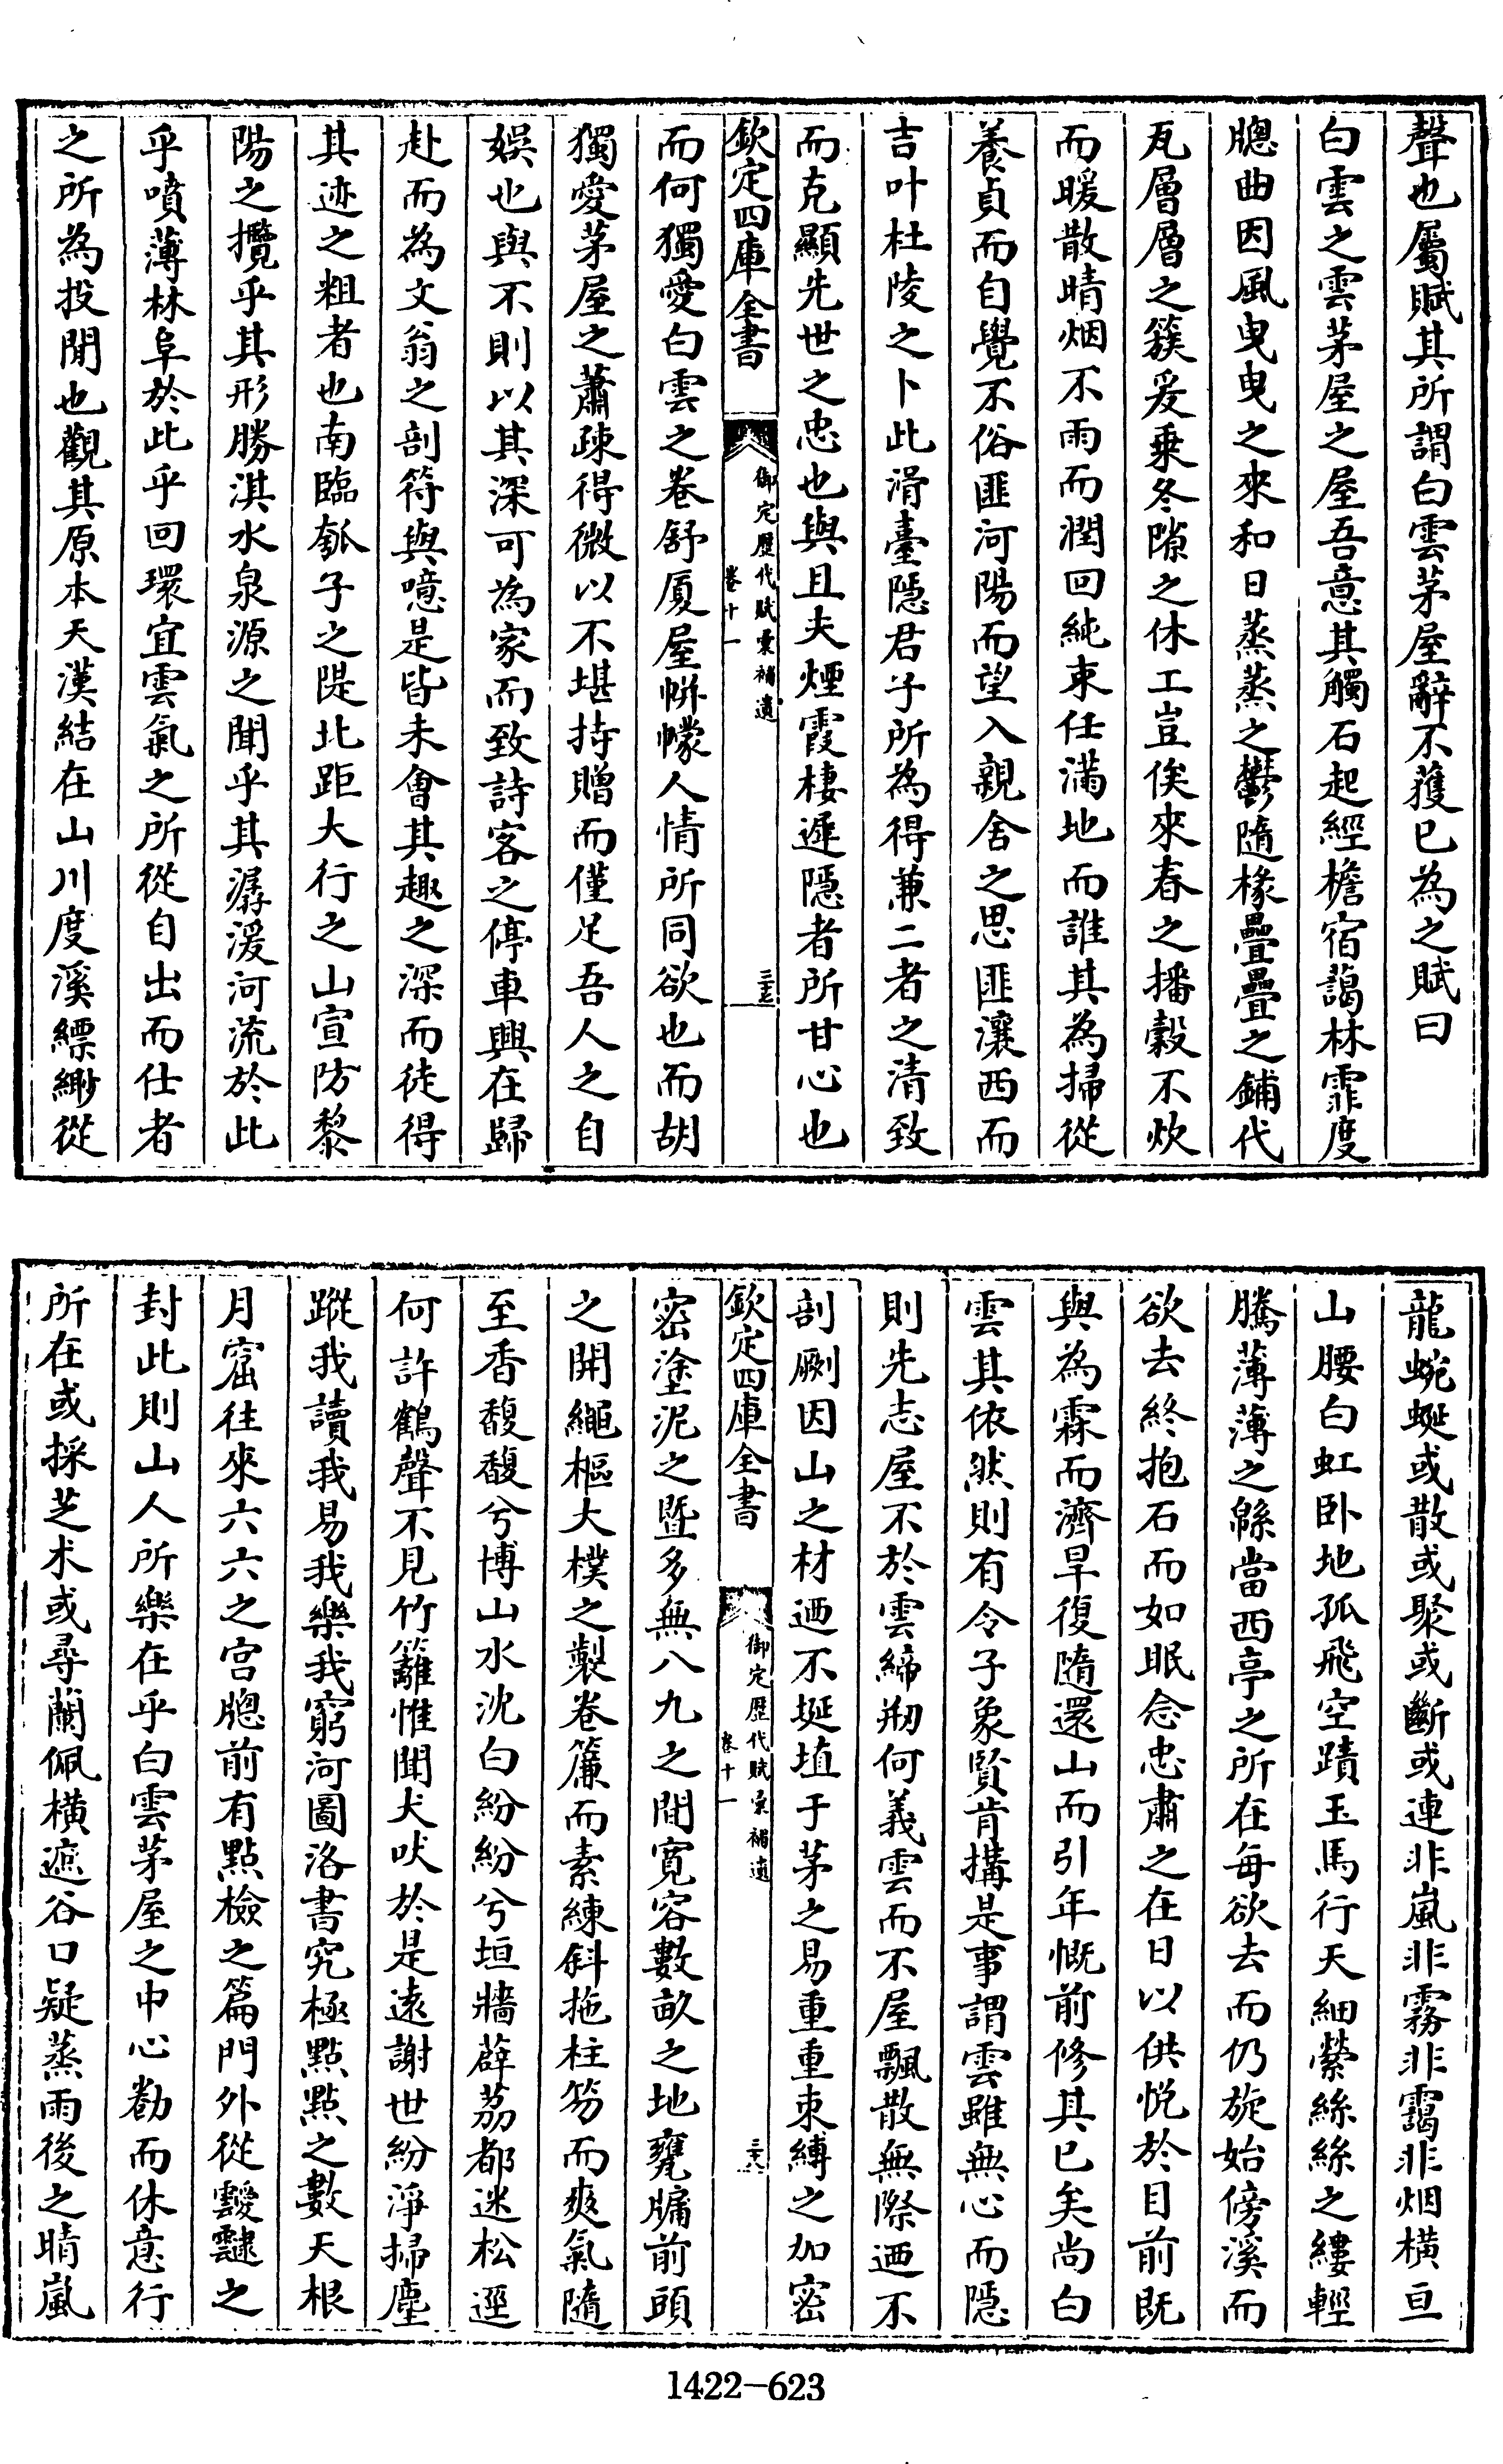 聲也屬賦其所謂白雲茅屋辭不獲已為之賦曰
白雲之雲茅屋之屋吾意其觸石起經檐宿藹林霏度
牕曲因風曳曳之來和日蒸蒸之鬱隨椽疊疊之鋪代
瓦層層之簇爰乗冬隙之休工豈俟來春之播穀不炊
而暖散晴烟不雨而潤回純束任滿地而誰其為掃從
養貞而自覺不俗匪河陽而望入親舍之思匪瀼西而
吉叶杜陵之卜此滑臺隱君子所為得兼二者之清致
而克顯先世之忠也與且夫煙霞棲遲隱者所甘心也
欽定四庫全書
御定歴代賦彙補遺
卷十一
三十七
而何獨愛白雲之卷舒厦屋帡幪人情所同欲也而胡
獨愛茅屋之蕭疎得微以不堪持贈而僅足吾人之自
娛也與不則以其深可為家而致詩客之停車興在歸
赴而為文翁之剖符與噫是皆未會其趣之深而徒得
其迹之粗者也南臨瓠子之隄北距大行之山宣防黎
陽之攬乎其形勝淇水泉源之聞乎其潺湲河流於此
乎噴薄林阜於此乎回環宜雲氣之所從自出而仕者
之所為投閒也觀其原本天漢結在山川度溪縹緲從
龍蜿蜒或散或聚或斷或連非嵐非霧非靄非烟橫亘
山腰白虹卧地孤飛空蹟玉馬行天細縈絲絲之縷輕
騰薄薄之緜當西亭之所在每欲去而仍旋始傍溪而
欲去終抱石而如眠念忠肅之在日以供悅於目前既
與為霖而濟旱復隨還山而引年慨前修其已矣尚白
雲其依然則有令子象賢肯搆是事謂雲雖無心而隱
則先志屋不於雲締剏何義雲而不屋飄散無際迺不
剞劂因山之材迺不埏埴于茅之易重重束縛之加密
欽定四庫全書
御定歴代賦彙補遺
卷十一
三十八
密塗泥之曁多無八九之間寛容數畝之地甕牖前頭
之開繩樞大樸之製卷簾而素練斜拖柱笏而爽氣隨
至香馥馥兮博山水沈白紛紛兮垣牆薜荔都迷松逕
何許鶴聲不見竹籬惟聞犬吠於是遠謝世紛淨掃塵
蹤我讀我易我樂我窮河圖洛書究極點點之數天根
月窟往來六六之宮牕前有點檢之篇門外從靉靆之
封此則山人所樂在乎白雲茅屋之中心勌而休意行
所在或採芝术或尋蘭佩橫遮谷口疑蒸雨後之晴嵐
1422—623